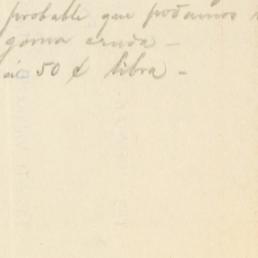 probable que podamos
goma cruda —
á 50 ¢ libra —